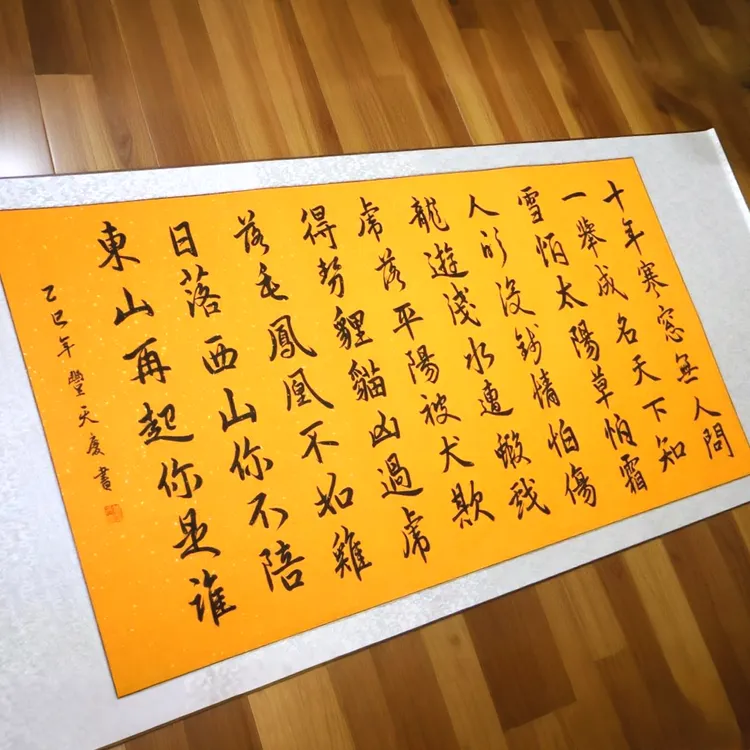 十年寒窓無人問
一舉成名天下知
雪怕太陽草怕霜
人怕没錢情怕傷
龍遊淺水遭蝦戲
虎落平陽被犬欺
得勢貍貓凶過虎
落毛鳳凰不如雞
日落西山你不陪
東山再起你是誰
乙巳年豐天慶書